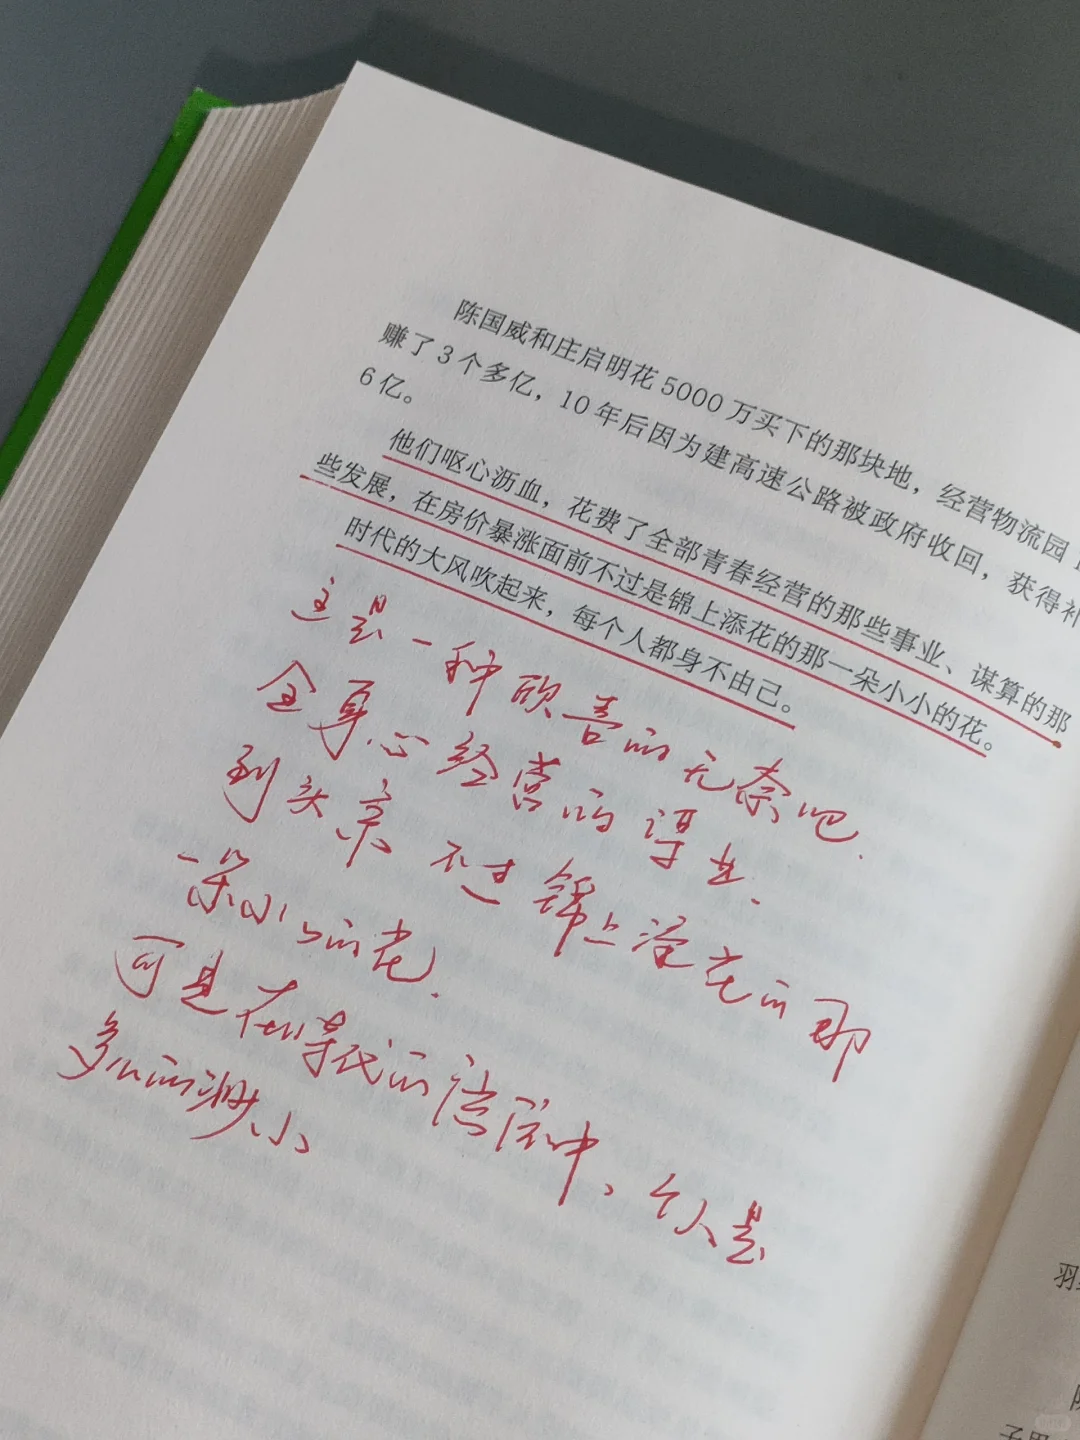 陈国威和庄启明花5000万买下的那块地，经营物流园
赚了3个多亿，10年后因为建高速公路被政府收回，获得补
6亿。
他们呕心沥血，花费了全部青春经营的那些事业、谋算的那
些发展，在房价暴涨面前不过是锦上添花的那一朵小小的花。
时代的大风吹起来，每个人都身不由己。
这是一种欣喜的无奈吧.
全身心经营的谋生.
到头来 不过锦上添花的那
一朵小小的花.
可是在时代的洪流中、个人是
多么的渺小
羽